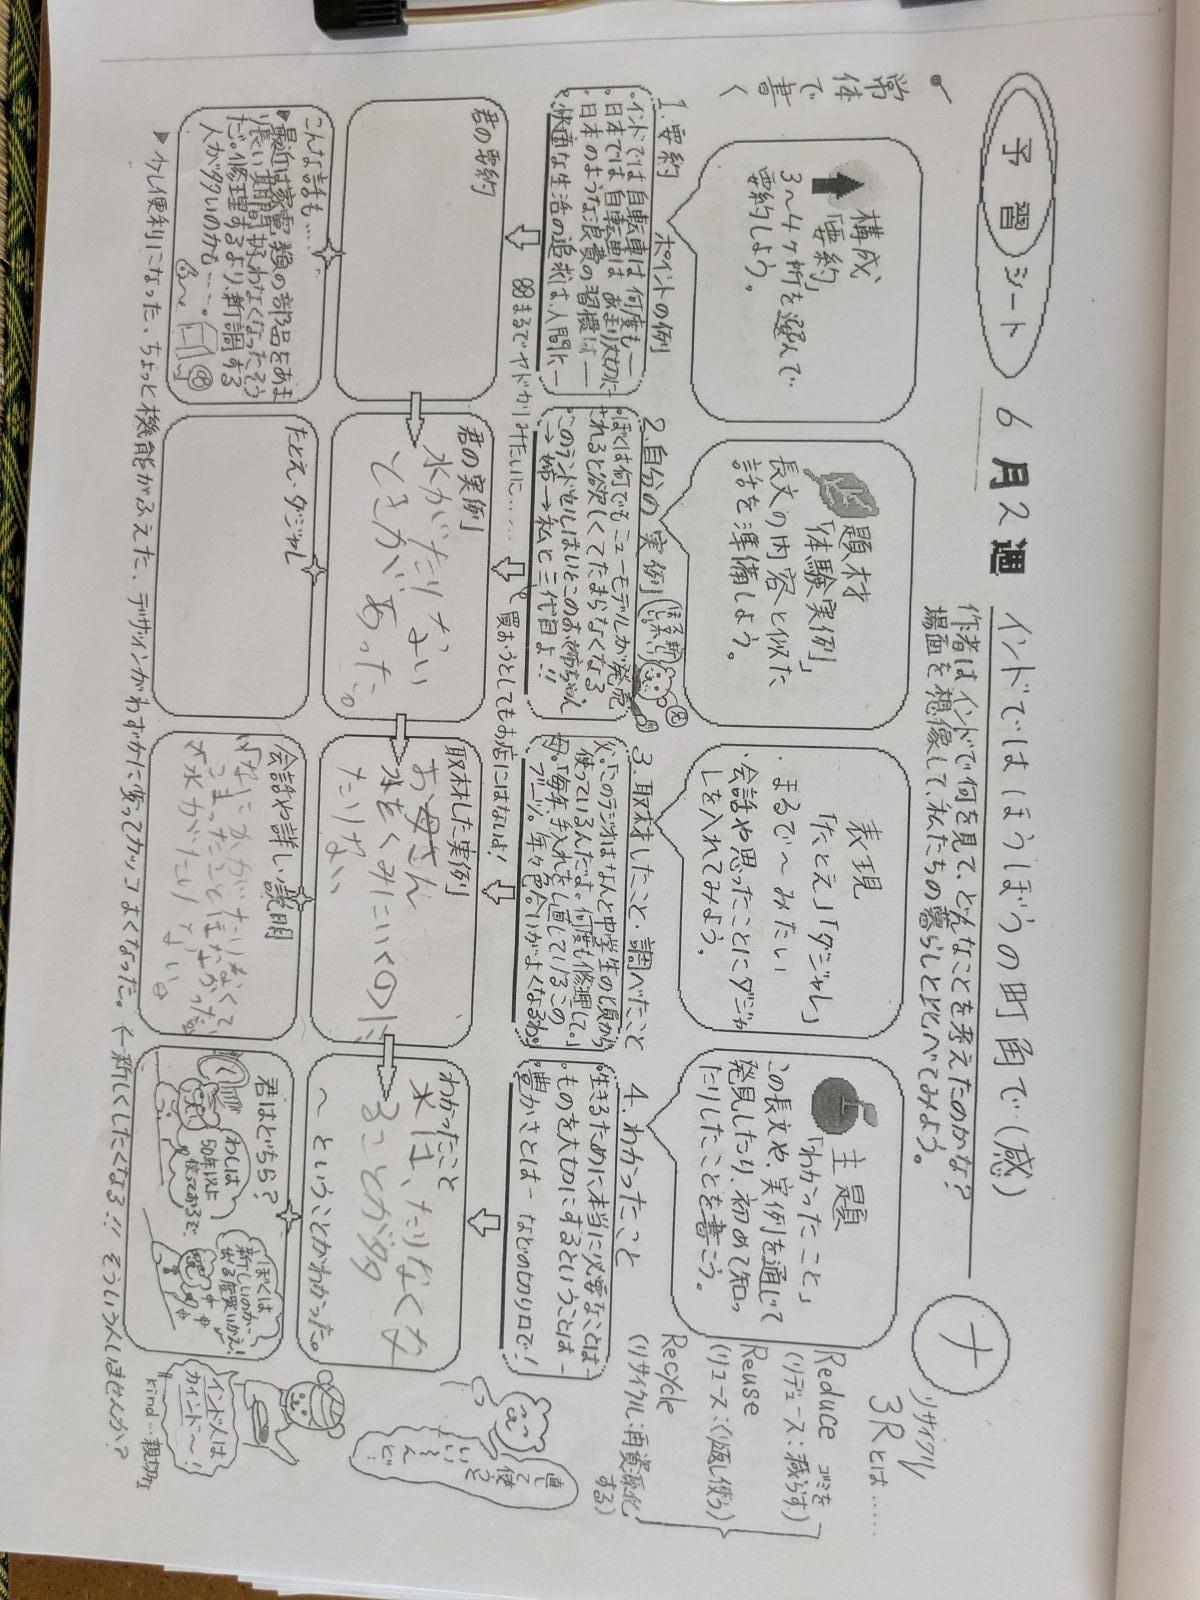 予習シート 6月2週 インドではほうぼうの町角で(感)
作者はインドで何を見て、どんなことを考えたのかな?
場面を想像して、私たちの暮らしと比べてみよう。
ナ
常体で書く
構成
「要約」
3〜4ヶ所を選んで
要約しよう。
題材
「体験実例」
長文の内容と似た
話を準備しよう。
表現
「たとえ」「ダジャレ」
・まるで〜みたい
・会話や思ったことにダジャ
レを入れてみよう。
主題
「わかったこと」
この長文や、実例を通じて
発見したり、初めて知っ
たりしたことを書こう。
リサイクル
3Rとは……
Reduce ゴミを
(リデュース:減らす)
Reuse
(リユース:くり返し使う)
Recycle
(リサイクル:再資源化
する)
1.要約 ポイントの例
・インドでは自転車は何度も―
・日本では自転車は、あまり大切に
・日本のような浪費の習慣は―
・快適な生活の追求は、人間に―
2.自分の実例
・ぼくは何でもニューモデルが発売
されると欲しくてたまらなくなる
・このランドセルはいとこのお姉ちゃん
→姉→私と三代目よ!!
3.取材したこと・調べたこと
父。「このラジオはなんと中学生の頃から
使っているんだよ。何度も修理して。」
母。「毎年手入れをし直しているこの
ブーツ。年々色合いがよくなるわ。」
4.わかったこと
・生きるために本当に必要なことは―
・ものを大切にするということは―
・豊かさとは― などの切り口で!
まるでヤドカリみたいに……
買おうとしてもお店にはないよ!
君の要約
君の実例
水がたりない
ときが、あった。
取材した実例
お母さん
水をくみにいくのに
たりない
わかったこと
水は、たりなくな
ることが多
〜ということがわかった。
直して
使う
といいそん
ど!
こんな話も…
最近は家電類の部品をあま
り長い期間扱わなくなったそう
だ。修理するより、新調する
人が多いのかも……。
たとえ・ダジャレ
会話や詳しい説明
「なにかがたりなくて
こまったことはなかった?」
「水がたりない。」
君はどちら?
わしは
50年以上
使っておるぞ
ぼくは
新しいのが
出る度買いかえ!
インド人は
カインド〜!
kind…親切な
▶少し便利になった、ちょっと機能がふえた、デザインがわずかに変ってカッコよくなった。←新しくしたくなる!!そういう人いませんか?